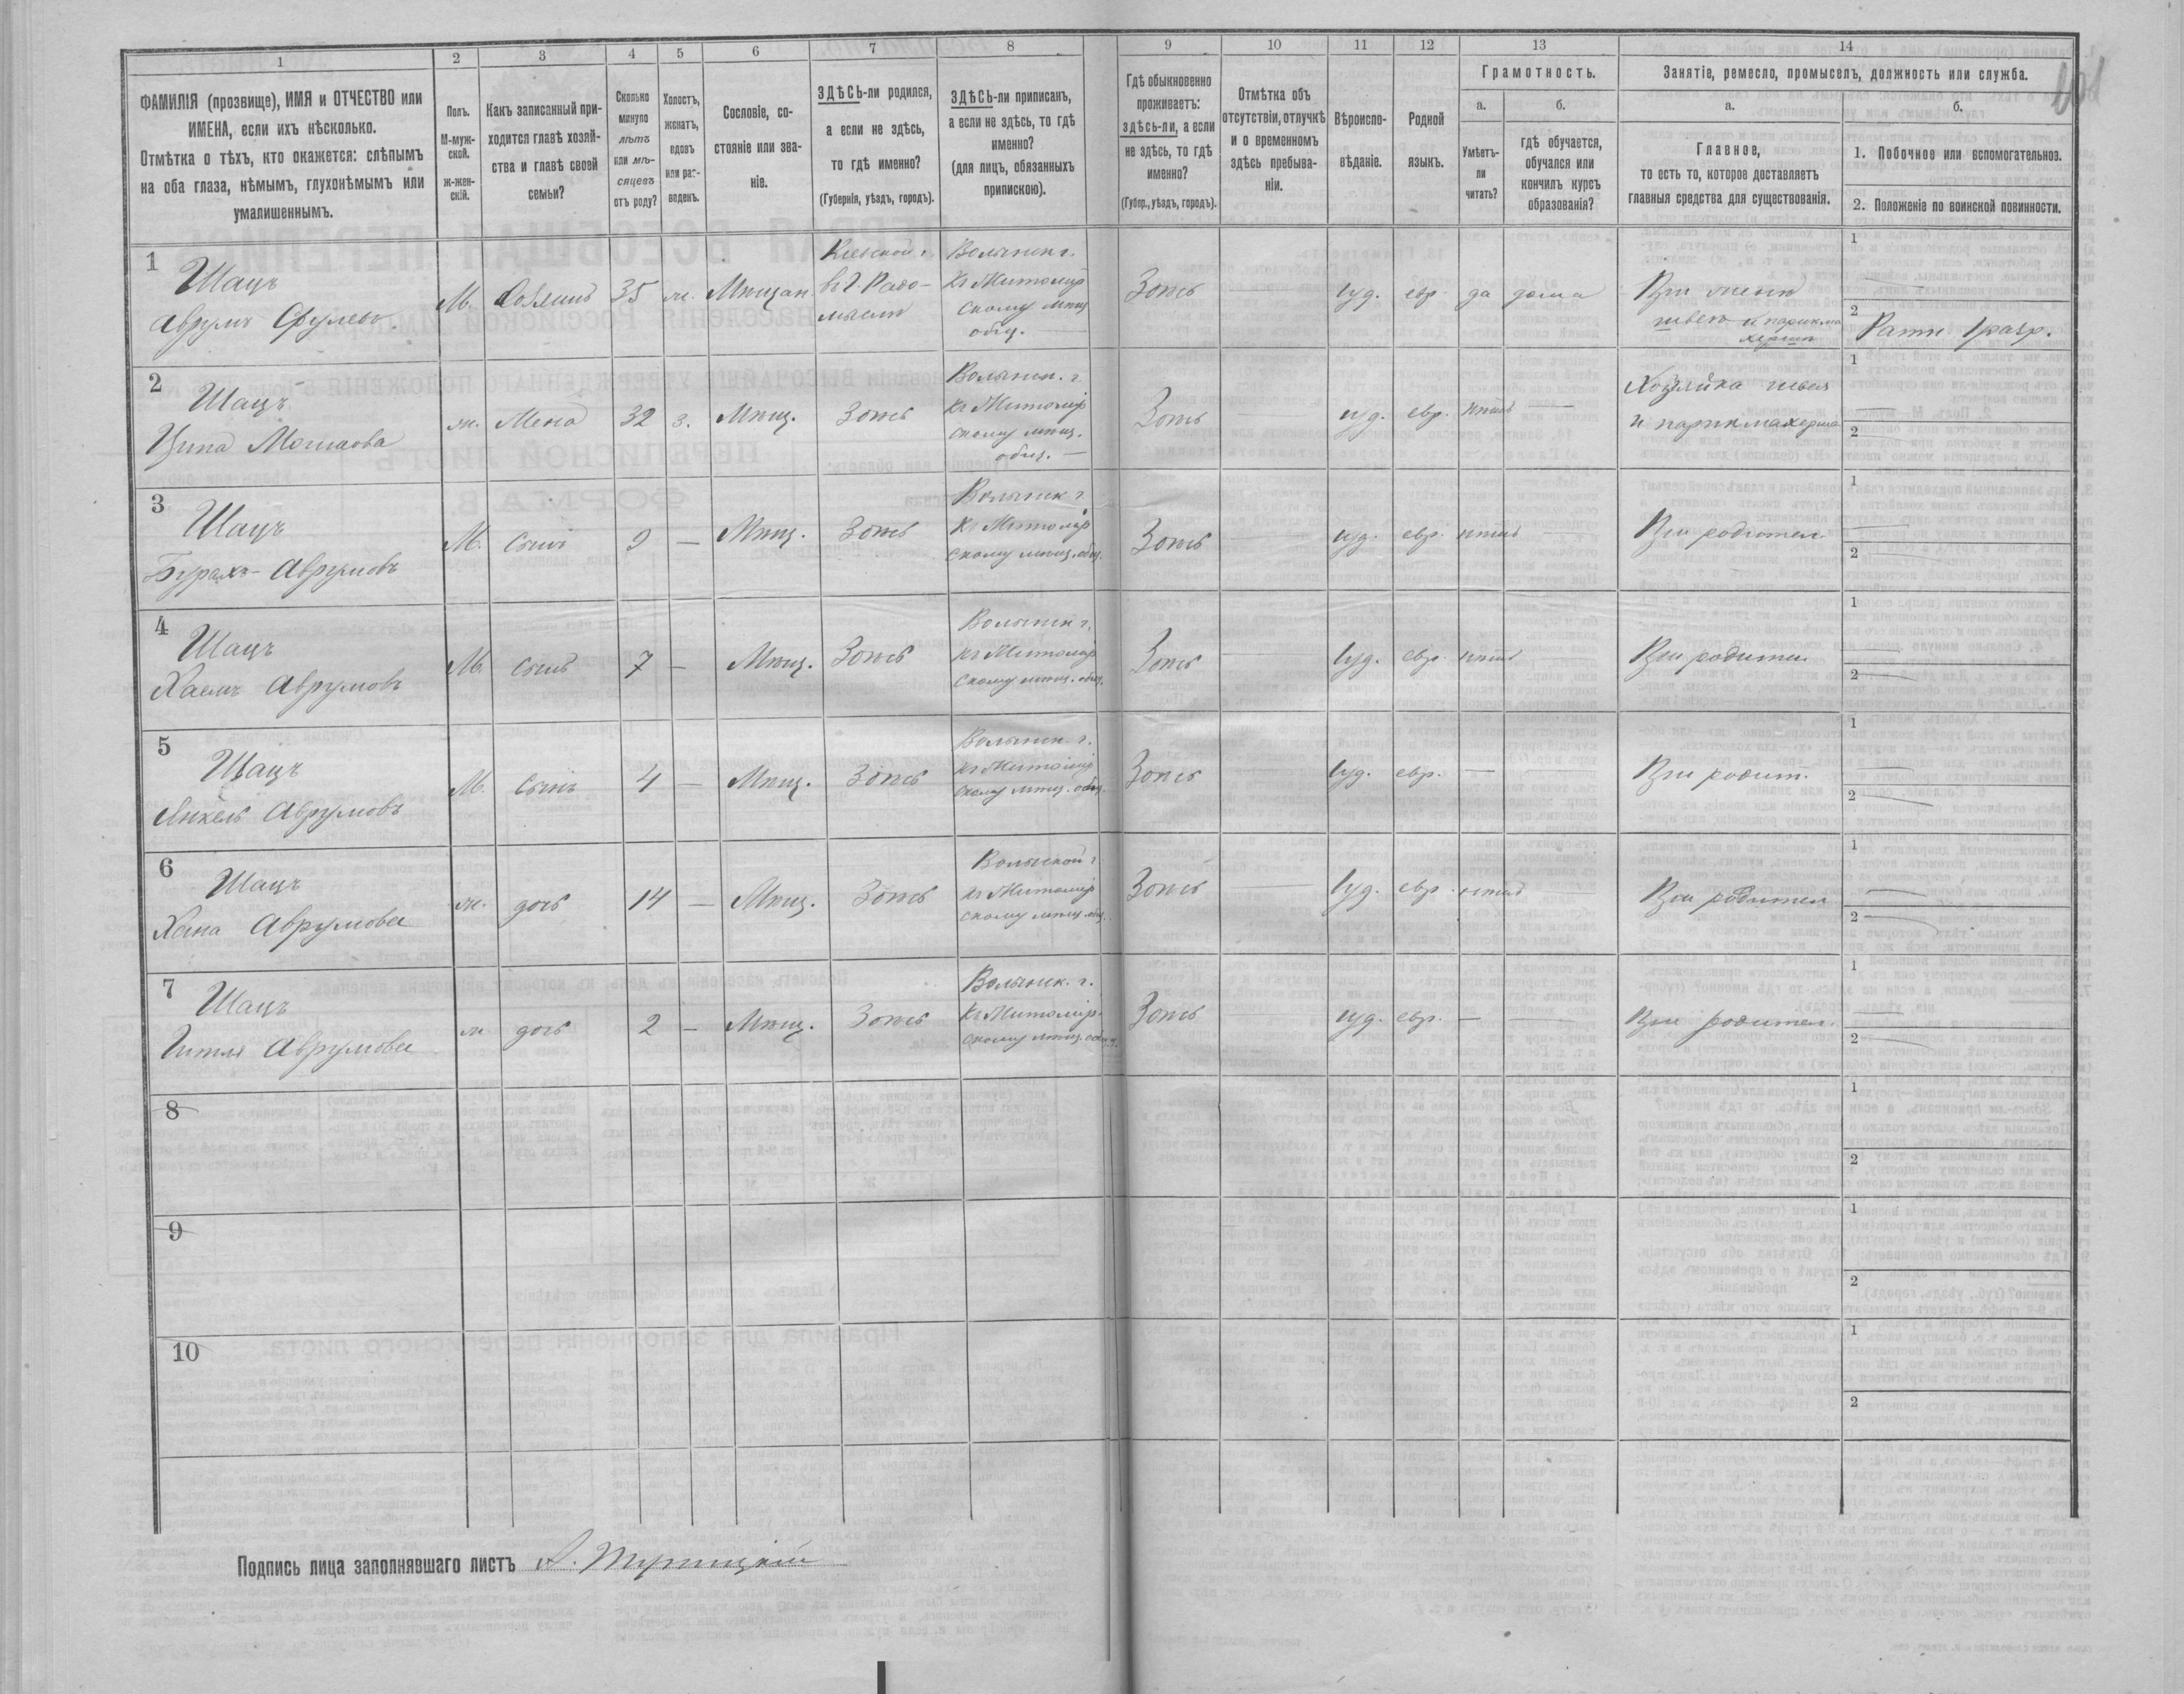 1
2
3
4
5
6
7
8
9
10
11
12
13
14
ФАМИЛІЯ (прозвище), ИМЯ и ОТЧЕСТВО или
ИМЕНА, если ихъ нѣсколько.
Отмѣтка о тѣхъ, кто окажется: слѣпымъ
на оба глаза, нѣмымъ, глухонѣмымъ или
умалишеннымъ.
Полъ.
М-муж-
ской.
ж-жен-
скій.
Какъ записанный при-
ходится главѣ хозяй-
ства и главѣ своей
семьи?
Сколько
минуло
лѣтъ
или мѣ-
сяцевъ
отъ роду?
Холостъ,
женатъ,
вдовъ
или раз-
веденъ.
Сословіе, со-
стояніе или зва-
ніе.
ЗДѢСЬ-ли родился,
а если не здѣсь,
то гдѣ именно?
(Губернія, уѣздъ, городъ).
ЗДѢСЬ-ли приписанъ,
а если не здѣсь, то гдѣ
именно?
(для лицъ, обязанныхъ
припискою).
Гдѣ обыкновенно
проживаетъ:
здѣсь-ли, а если
не здѣсь, то гдѣ
именно?
(Губер., уѣздъ, городъ).
Отмѣтка объ
отсутствіи, отлучкѣ
и о временномъ
здѣсь пребыва-
ніи.
Вѣроиспо-
вѣданіе.
Родной
языкъ.
Грамотность.
а.
Умѣетъ-
ли
читать?
б.
гдѣ обучается,
обучался или
кончилъ курсъ
образованія?
Занятіе, ремесло, промыселъ, должность или служба.
а.
Главное,
то есть то, которое доставляетъ
главныя средства для существованія.
б.
1. Побочное или вспомогательное.
2. Положеніе по воинской повинности.
1
Шацъ
Аврумъ
М.
35
ж.
Мѣщан.
Кіевской г.
въ г. Радо-
мыслѣ
Волынск г.
къ Житомір
скому мѣщ
общ.
Здѣсь
Іуд.
евр.
да
дома
При женѣ
1
2
Ратн. 1 разр.
2
Шацъ
Ципа
ж.
Жена
32
з.
Мѣщ.
Здѣсь
Волынск. г.
къ Житомір
скому мѣщ.
общ.
Здѣсь
іуд.
евр.
нѣтъ
Хозяйка швея
и парикмахерша
1
2
3
Шацъ
Аврумовъ
М.
Сынъ
9
Мѣщ.
Здѣсь
Волынск г.
къ Житомір
скому мѣщ. общ.
Здѣсь
іуд.
евр.
нѣтъ
При родител.
1
2
4
Шацъ
Хаемъ Аврумовъ
М.
сынъ
7
Мѣщ.
Здѣсь
Волынск г.
къ Житомір
скому мѣщ. общ.
Здѣсь
Іуд.
евр.
нѣтъ
При родител
1
2
5
Шацъ
Янкель Аврумовъ
М.
Сынъ
4
Мѣщ.
Здѣсь
Волынск. г.
къ Житомір
скому мѣщ. общ.
Здѣсь
Іуд.
евр.
При родит.
1
2
6
Шацъ
Хана Аврумова
ж.
дочь
14
Мѣщ.
Здѣсь
Волынской г
къ Житомір
скому мѣщ. общ.
Здѣсь
Іуд.
евр.
нѣтъ
При родител
1
2
7
Шацъ
Гитля Аврумова
ж
дочь
2
Мѣщ.
Здѣсь
Волынск. г.
къ Житомір-
скому мѣщ. общ.
Здѣсь
іуд.
евр.
При родител.
1
2
8
1
2
9
1
2
10
1
2
Подпись лица заполнявшаго листъ